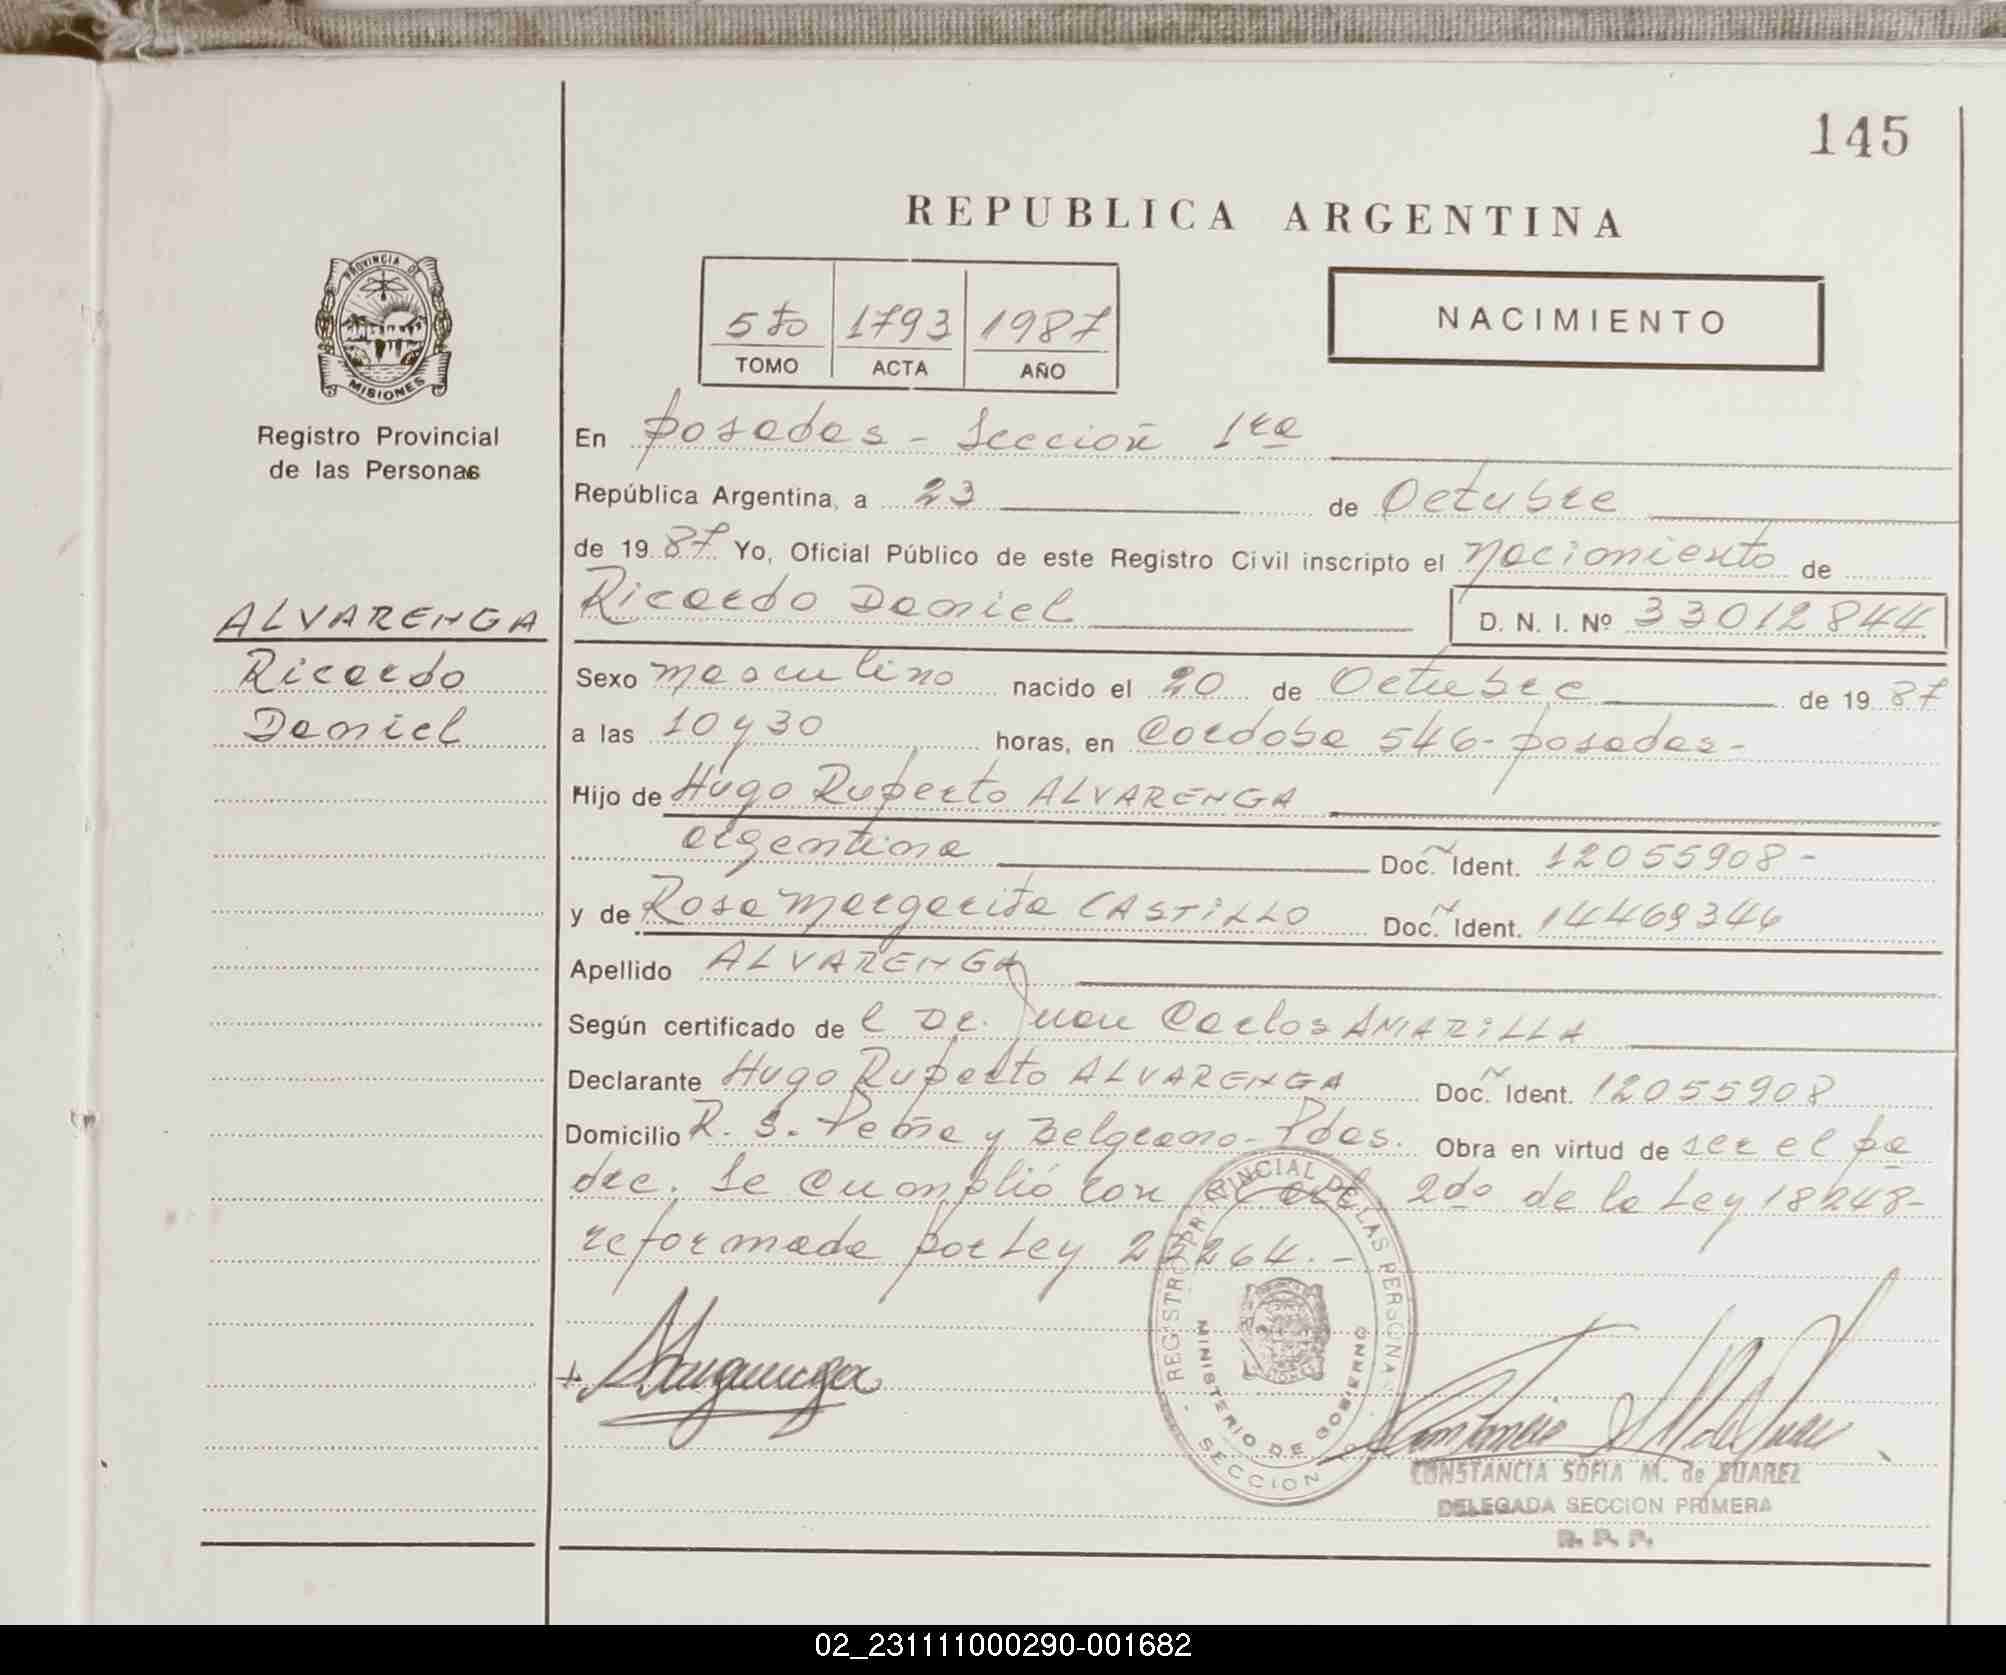 145
REPUBLICA ARGENTINA
PROVINCIA DE
MISIONES
Registro Provincial
de las Personas
5to 1793 1987
TOMO ACTA AÑO
NACIMIENTO
En Posadas - Sección 1ra
República Argentina, a 23 de Octubre
de 1987 Yo, Oficial Público de este Registro Civil inscripto el nacimiento de
Ricardo Daniel D. N. I. Nº 33012844
ALVARENGA
Ricardo
Daniel
Sexo masculino nacido el 20 de Octubre de 1987
a las 10 y 30 horas, en Cordoba 546- Posadas-
Hijo de Hugo Ruperto ALVARENGA
argentina Doc. Ident. 12055908-
y de Rosa Margarita CASTILLO Doc. Ident. 14469346
Apellido ALVARENGA
Según certificado de l Dr. Juan Carlos AMARILLA
Declarante Hugo Ruperto ALVARENGA Doc. Ident. 12055908
Domicilio R. S. Peña y Belgrano- Pdas. Obra en virtud de ser el pa
dre. Se cumplió con el art. 2do de la Ley 18248-
reformada por Ley 22264.-
REGISTRO PROVINCIAL DE LAS PERSONAS
MINISTERIO DE GOBIERNO
SECCION
CONSTANCIA SOFIA M. de SUAREZ
DELEGADA SECCION PRIMERA
R. P. P.
02_231111000290-001682